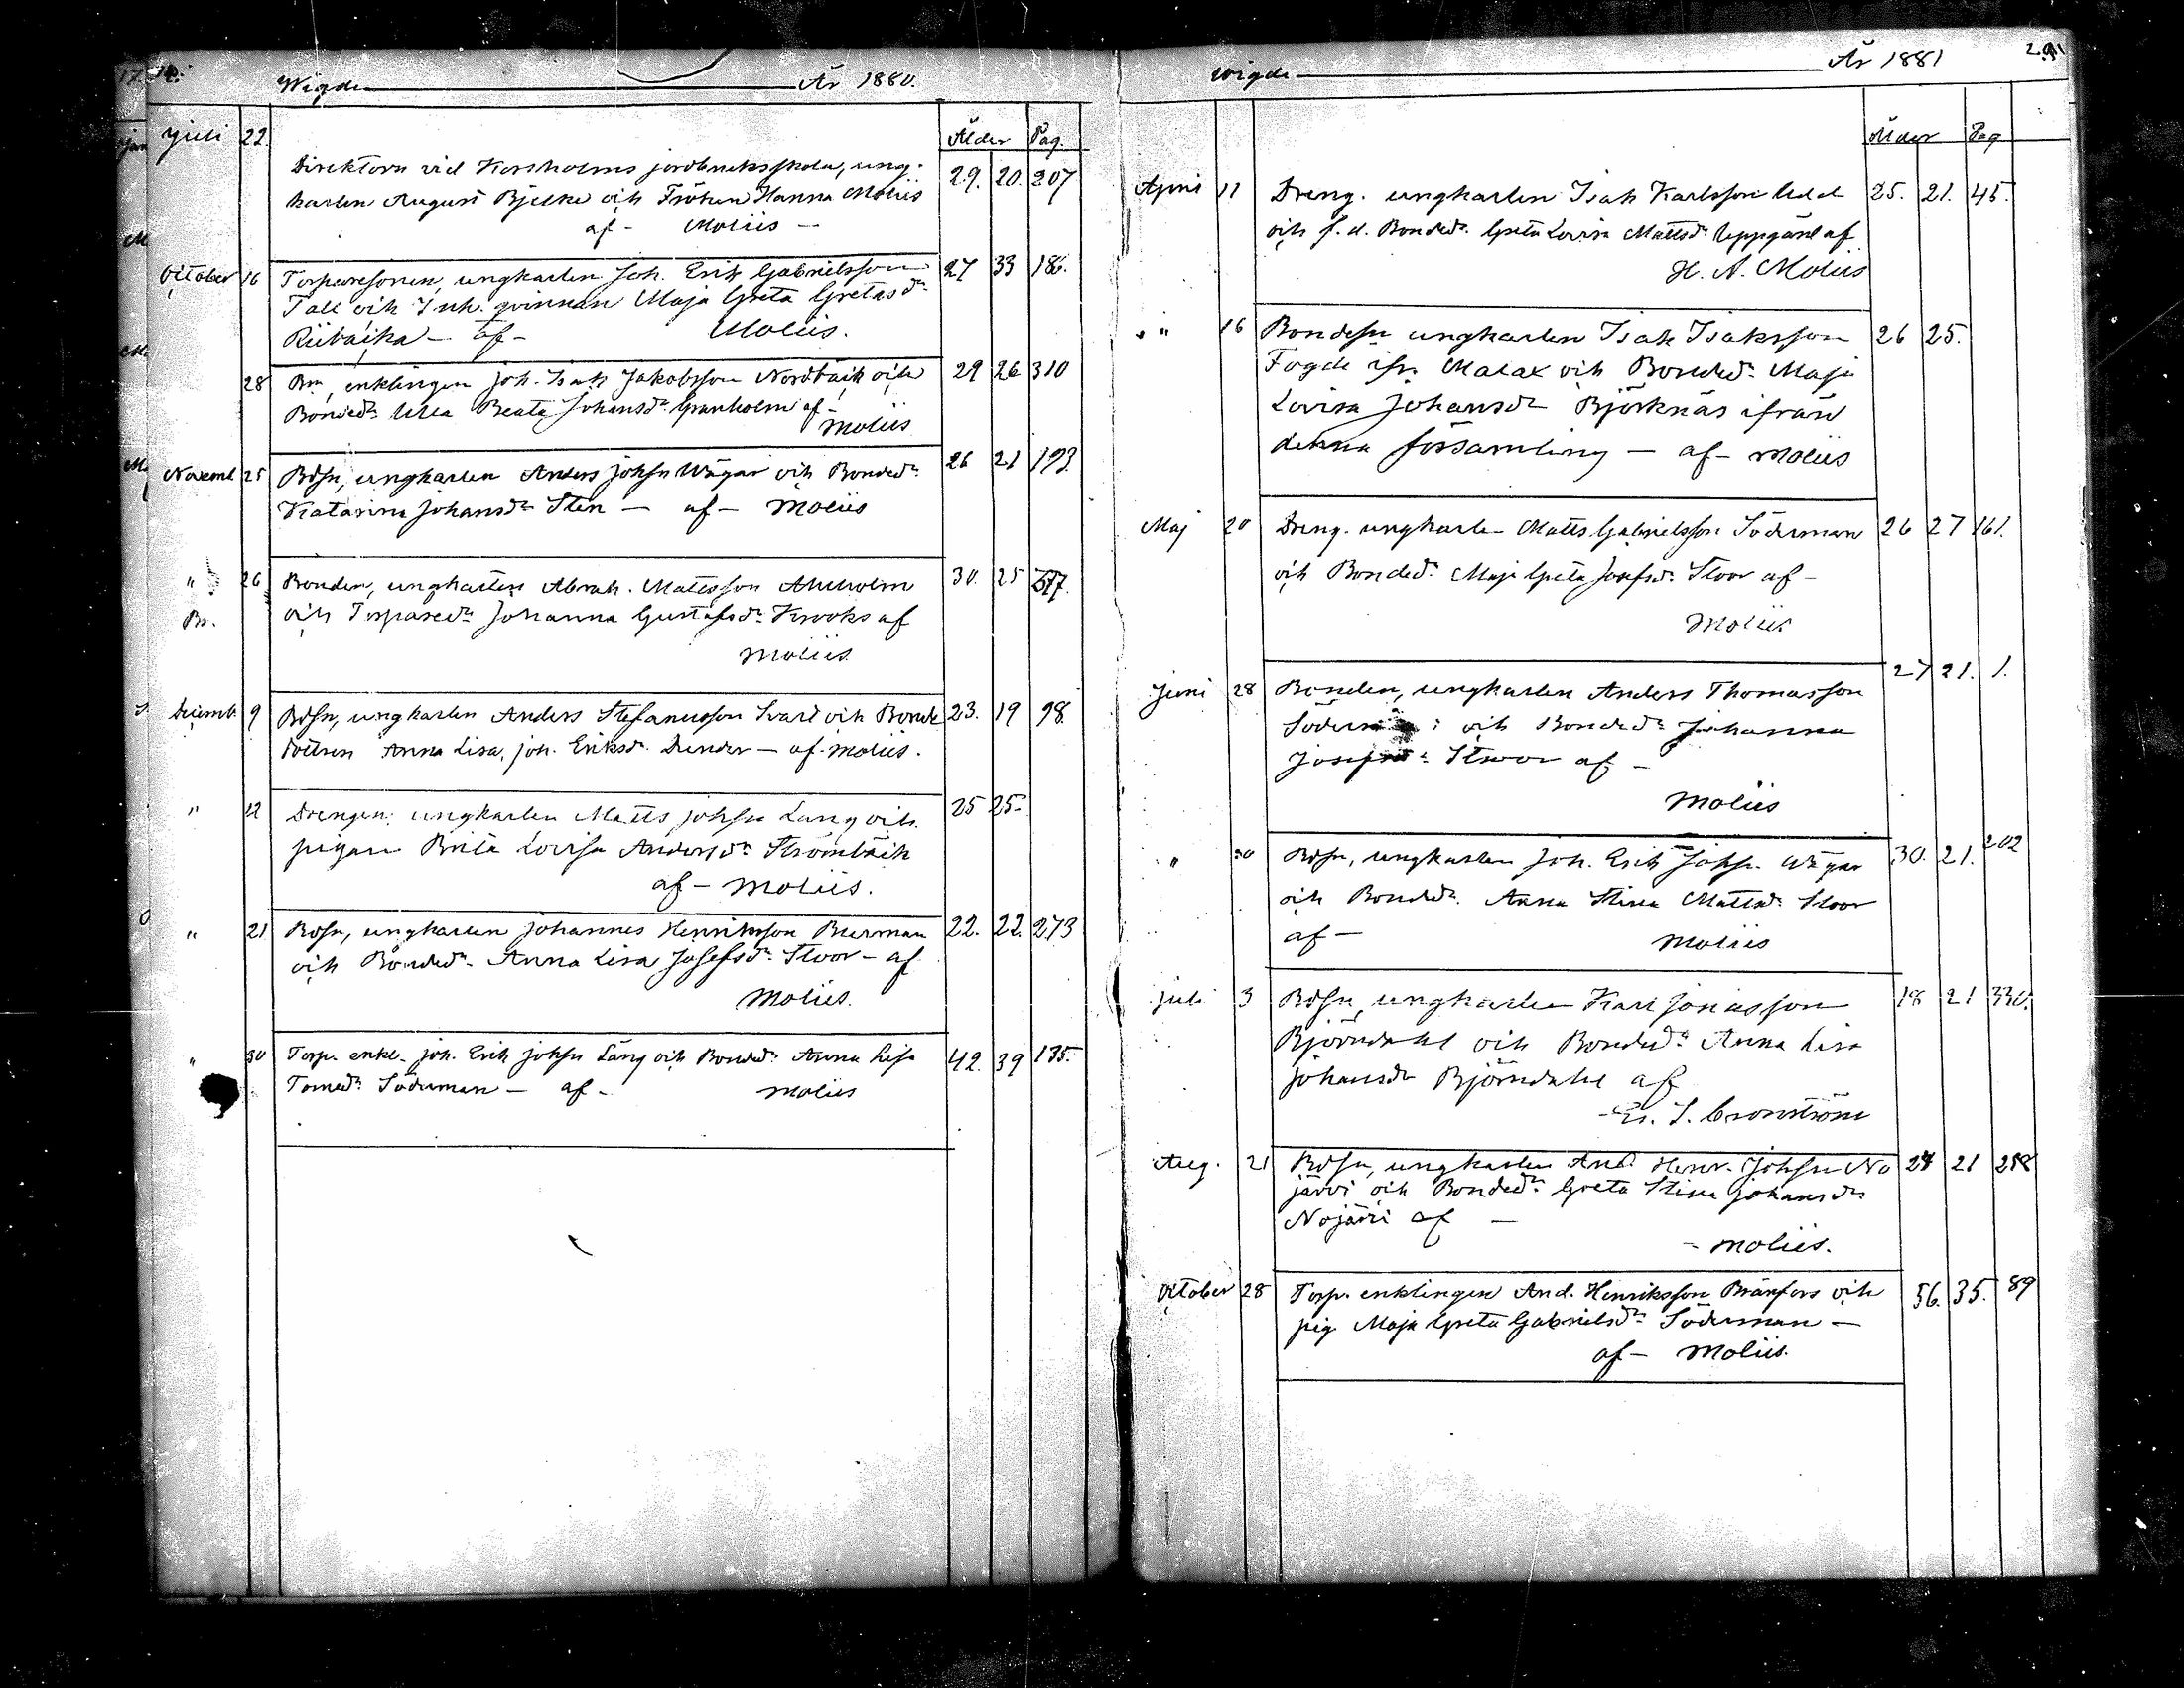 Wigde År 1880.
Ålder Pag.
Juli 22.
Direktorn vid Korsholms jordbruksskola, ung- 29. 20. 207
karlen August Bjelke och Fröken Hanna Moliis
af - Moliis -
October 16 Torparesonen, ungkarlen Joh. Erik Gabrielsson 27 33 186.
Tall och Inh. qvinnan Maja Greta Gretasdr
af - Moliis.
28 Bn, enklingen Joh. Isak Jakobsson Nordbäck och 29 26 310
Bonded. Ulla Beata Johansdr Granholm af -
Moliis
Novemb 25 Bdsn, ungkarlen Anders Johsn Wägar och Bonded. 26 21 193
Katarina Johansdr Sten - af - Moliis
" 26 Bonden, ungkarlen Abrah. Mattsson Ahlholm 30. 25
Br. och Torpared. Johanna Gustafsdr Krooks af
Moliis
Decemb. 9 Bdsn, ungkarlen Anders Stefanusson Svart och Bonde 23. 19 98.
dottren Anna Lisa Joh. Eriksdr. Dunder - af Moliis.
" 12 Drengen, ungkarlen Matts Johsn Lång och 25 25.
pigan Brita Lovisa Andersdr Strömbäck
af - Moliis.
" 21 Bdsn, ungkarlen Johannes Henriksson Burman 22. 22. 273
och Bonded. Anna Lisa Josefsdr Stoor - af
Moliis.
" 30 Torp. enkl. Joh. Erik Johsn Lång och Bonded. Anna Lisa 42. 39 135.
Tomasdr Söderman - af - Moliis
Wigde År 1881
Ålder Pag
April 11 Dreng. ungkarlen Isak Karlsson Udd 25. 21. 45.
och f. d. Bonded. Greta Lovisa Mattsdr Uppgård af
H. A. Moliis
" 16 Bondesn ungkarlen Isak Isaksson 26 25.
Fogde ifr. Malax och Bonded. Maja
Lovisa Johansdr Björknäs ifrån
denna församling - af - Moliis
Maj 20 Dreng. ungkarlen Matts Gabrielsson Söderman 26 27 161.
och Bonded. Maja Greta Josefsdr. Stoor af -
Moliis
Juni 28 Bonden, ungkarlen Anders Thomasson 27 21. 1.
och Bonded. Johanna
Josefsdr Stoor af -
Moliis
" 30 Bdsn, ungkarlen Joh. Erik Johsn. Wägar 30. 21. 202
och Bonded. Anna Stina Mattsdr. Stoor
af - Moliis
Juli 3 Bdsn, ungkarlen Karl Jonasson 18 21 330.
Björndahl och Bonded. Anna Lisa
Johansdr Björndahl af
Er. I. Cronström
Aug. 21 Bdsn, ungkarlen And. Henr. Johsn No 21
järvi och Bonded. Greta Stina Johansdr
Nojärvi af -
- Moliis.
October 28 Torp. enklingen And. Henriksson Bränfors och 56. 35. 89
pig Maja Greta Gabrielsdr Söderman -
af - Moliis.